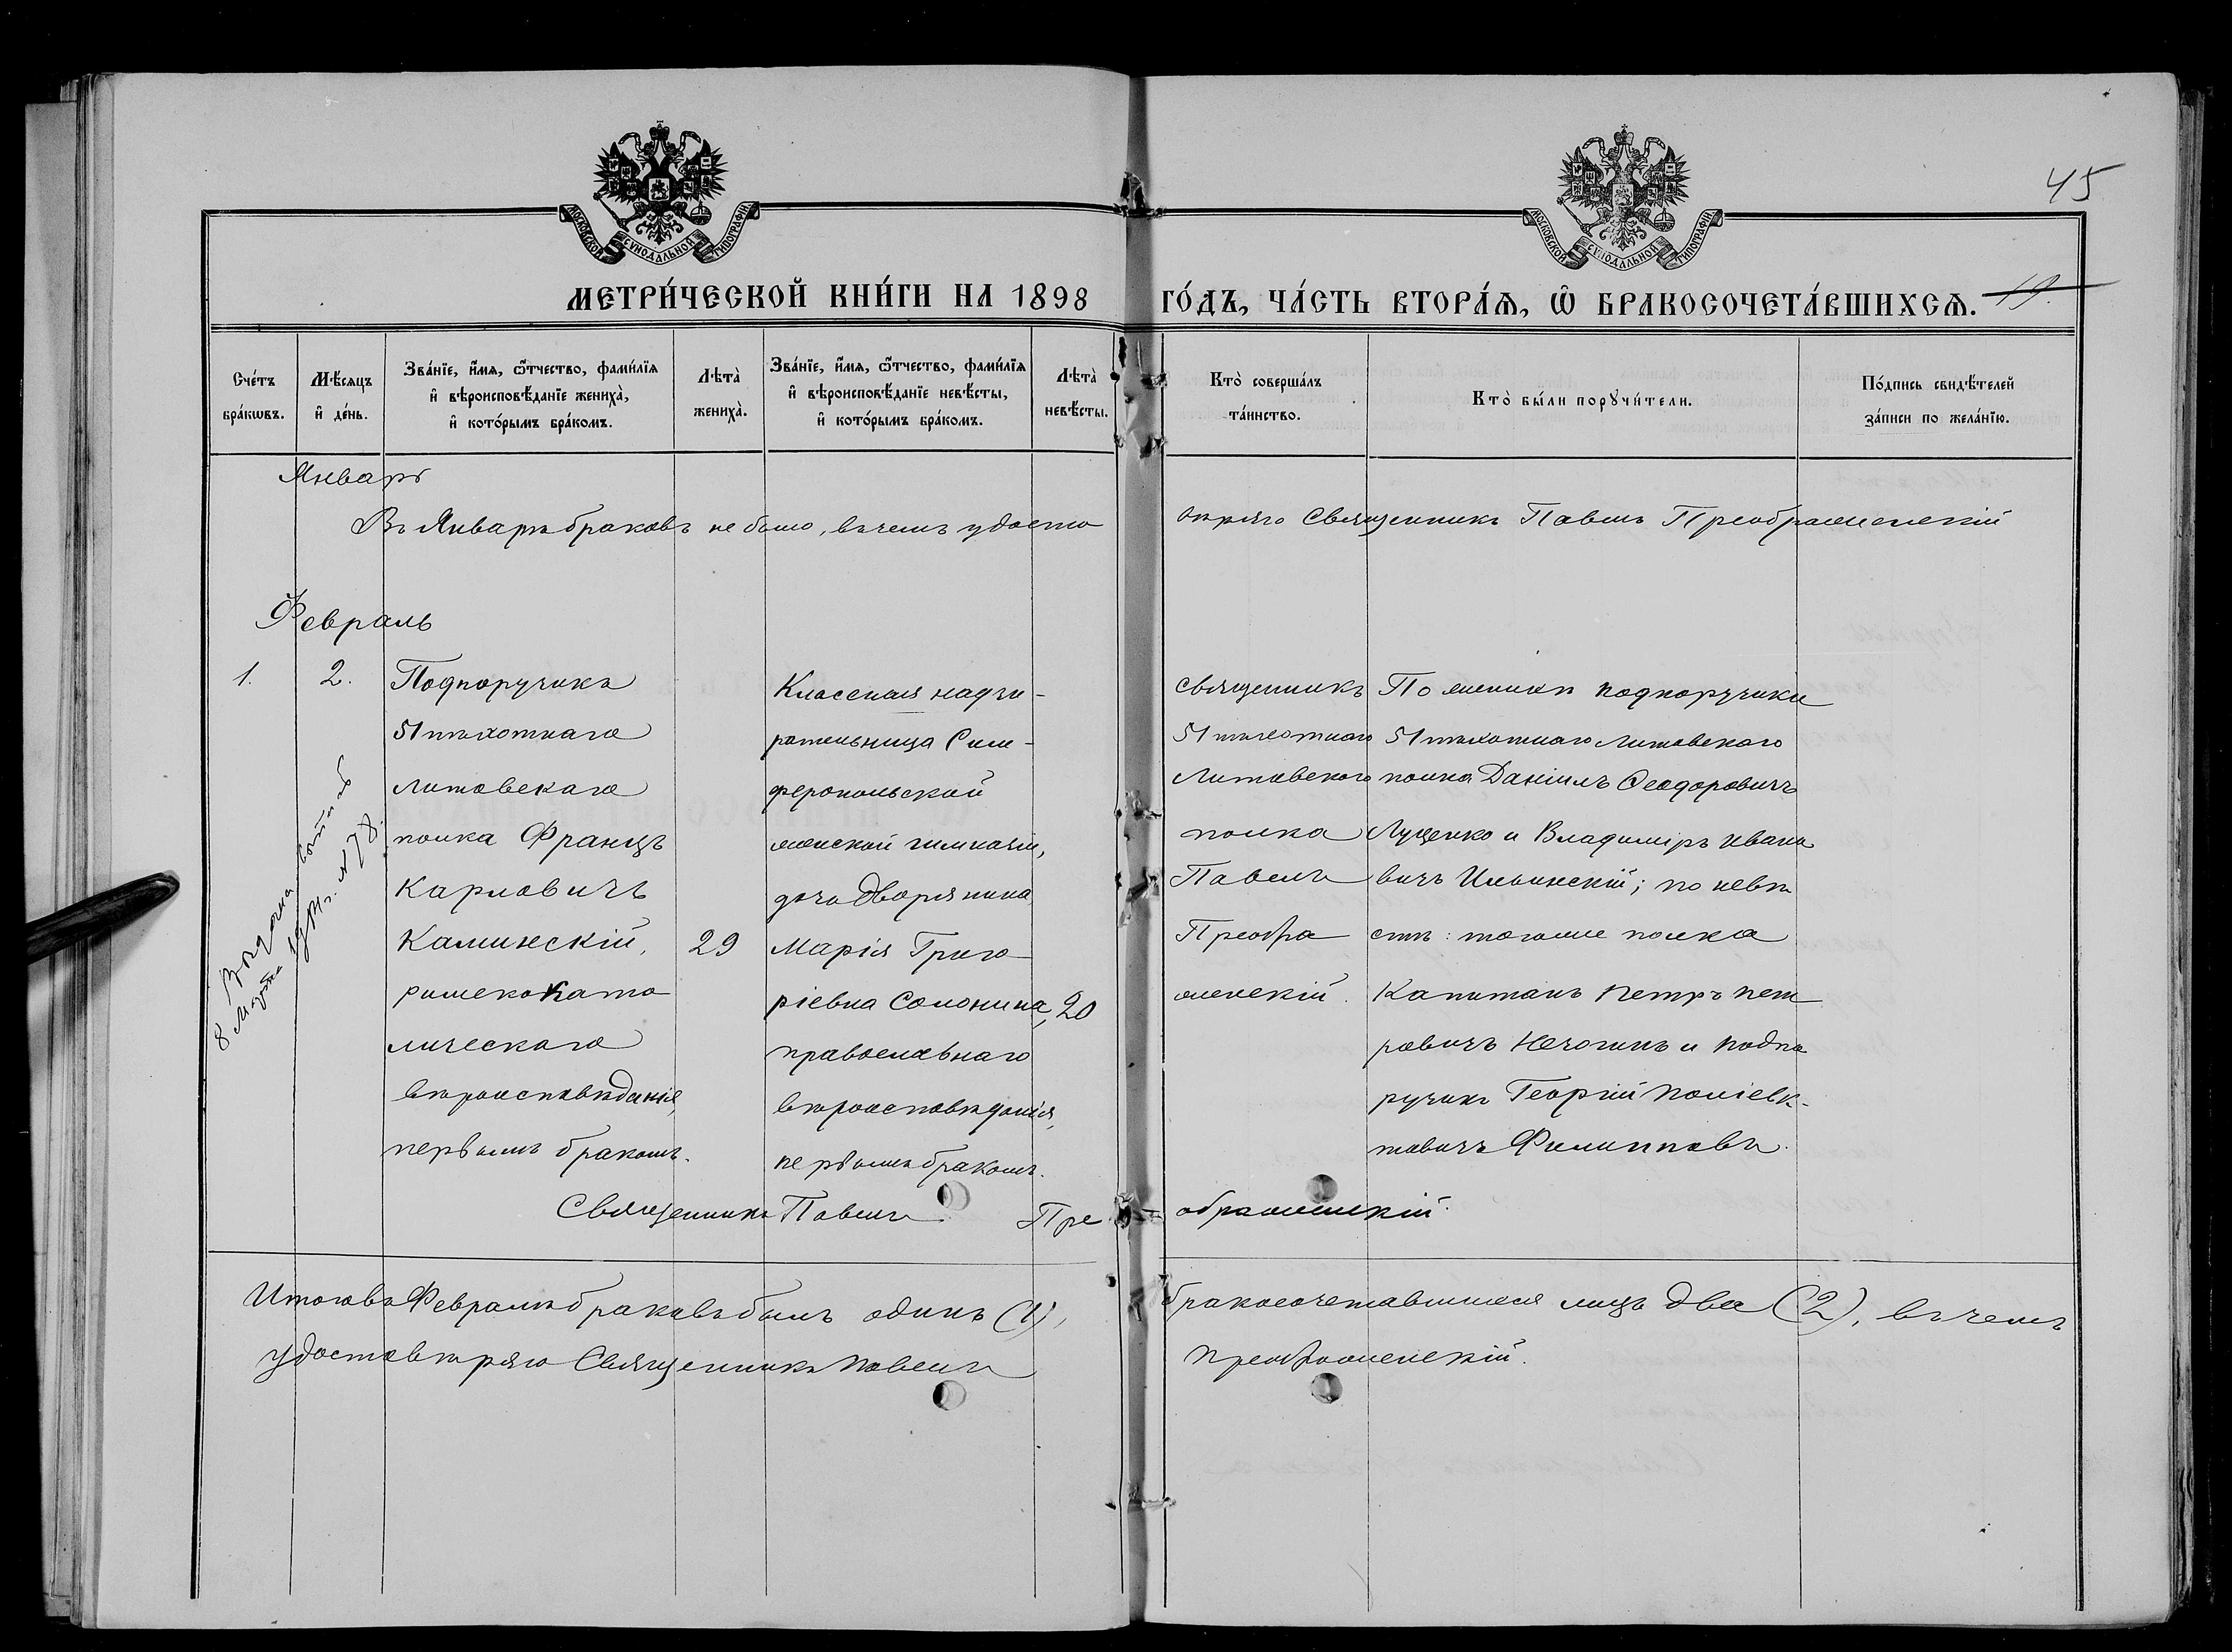 МОСКОВСКОЙ СУНОДАЛЬНОЙ ТИПОГРАФІИ.
МОСКОВСКОЙ СУНОДАЛЬНОЙ ТИПОГРАФІИ.
45
МЕТРИ́ЧЕСКОЙ КНИ́ГИ НА 1898 ГО́ДЪ, ЧА́СТЬ ВТОРА́Ѧ, Ѽ БРАКОСОЧЕТА́ВШИХСѦ. 19.
Сче́тъ бра́кѡвъ.
Мѣ́сяцъ и҆ де́нь.
Зва́нїе, и҆́мѧ, ѻ҆́тчество, фами́лїѧ
и҆ вѣроисповѣ́данїе жениха̀,
и҆ кото́рымъ бра́комъ.
Лѣта̀ жениха̀.
Зва́нїе, и҆́мѧ, ѻ҆́тчество, фами́лїѧ
и҆ вѣроисповѣ́данїе невѣ́сты,
и҆ кото́рымъ бра́комъ.
Лѣта̀ невѣ́сты.
Кто̀ соверша́лъ
та́инство.
Кто̀ бы́ли порꙋчи́тели.
По́дпись свидѣ́телей
за́писи по жела́нїю.
Январь
Въ Январѣ браковъ не было, въ чемъ удосто вѣряю Священникъ Павелъ Преображенскій
Февраль
1.
2.
Подпоручикъ
51 пѣхотнаго
Литовскаго
полка Францъ
Карловичъ
Каминскій,
римскокато
лическаго
вѣроисповѣданія,
первымъ бракомъ.
29
Классная надзи-
рательница Сим-
феропольской
женской гимназіи,
дочь дворянина
Марія Григо
ріевна Солонина,
православнаго
вѣроисповѣданія,
первымъ бракомъ.
20
Священникъ
51 пѣхотнаго
Литовскаго
полка
Павелъ
Преобра
женскій.
По женихѣ подпоручики
51 пѣхотнаго Литовскаго
полка Даніилъ Ѳеодоровичъ
Луценко и Владиміръ Ивано
вичъ Ильинскій; по невѣ
стѣ: тогоже полка
Капитанъ Петръ Пет
ровичъ Нечогинъ и подпо
ручикъ Георгій Поліевк-
товичъ Филипповъ.
Священникъ Павелъ Преображенскій.
8 Марта 1914 г. № 78.
Итого въ Февралѣ браковъ былъ одинъ (1), бракосочетавшихся лицъ два (2), въ чемъ
удостовѣряю Священникъ Павелъ Преображенскій.